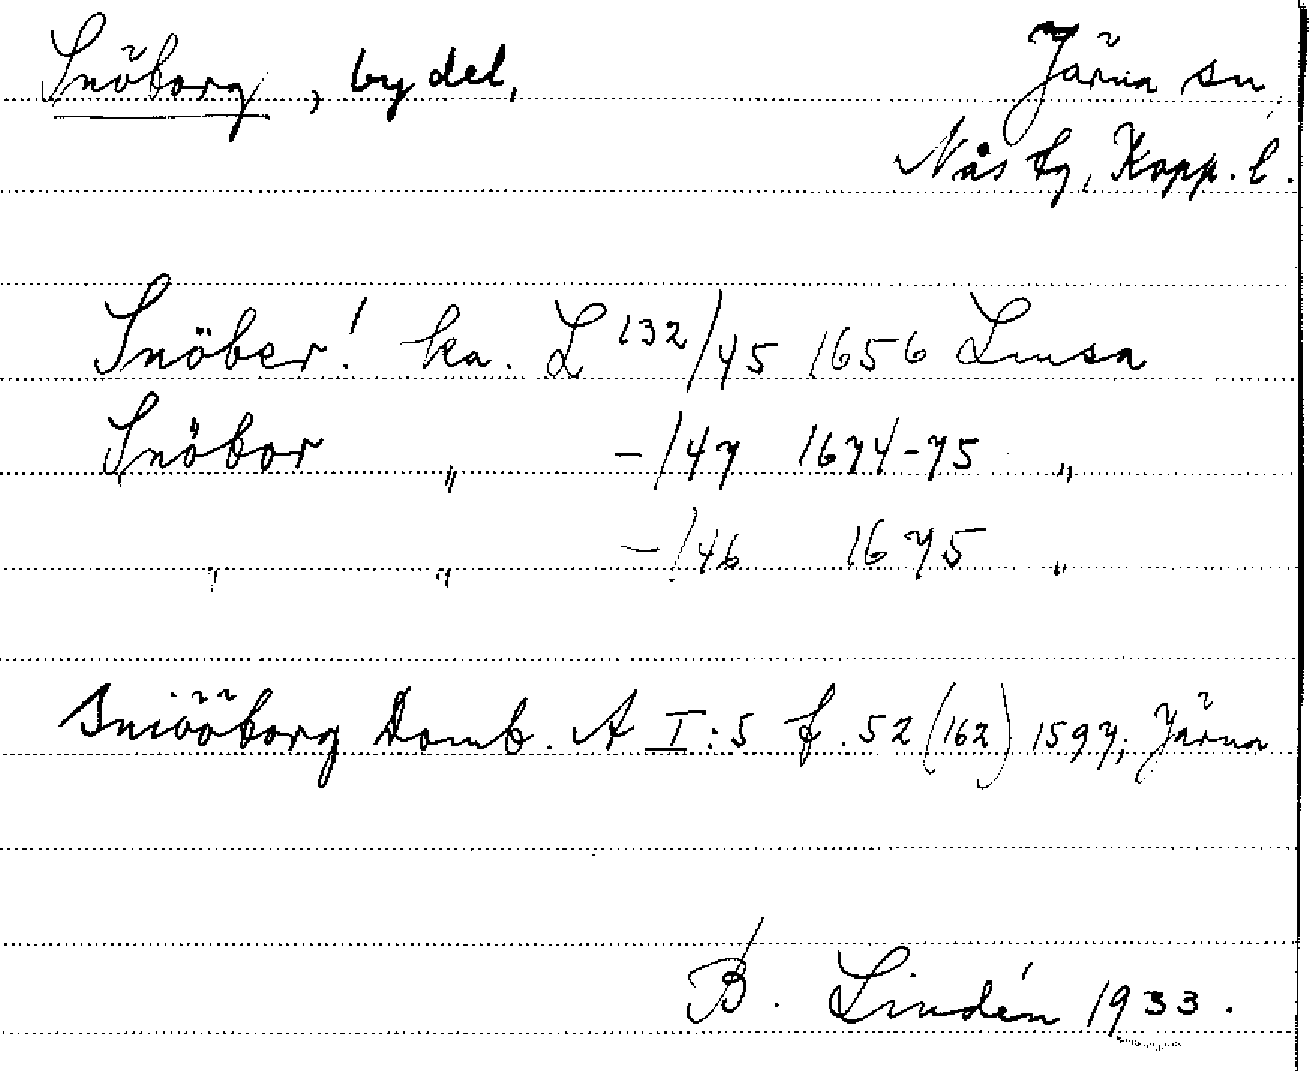 Snöborg, by del, Järna sn,
Nås tg, Kopp. l.
Snöber! ka. L 132/45 1656 Limsa
Snöbor " -/47 1674-75 "
" " -/46 1675 "
Sniööborg Domb. A I:5 f. 52 (162) 1597, Järna
B. Lindén 1933.